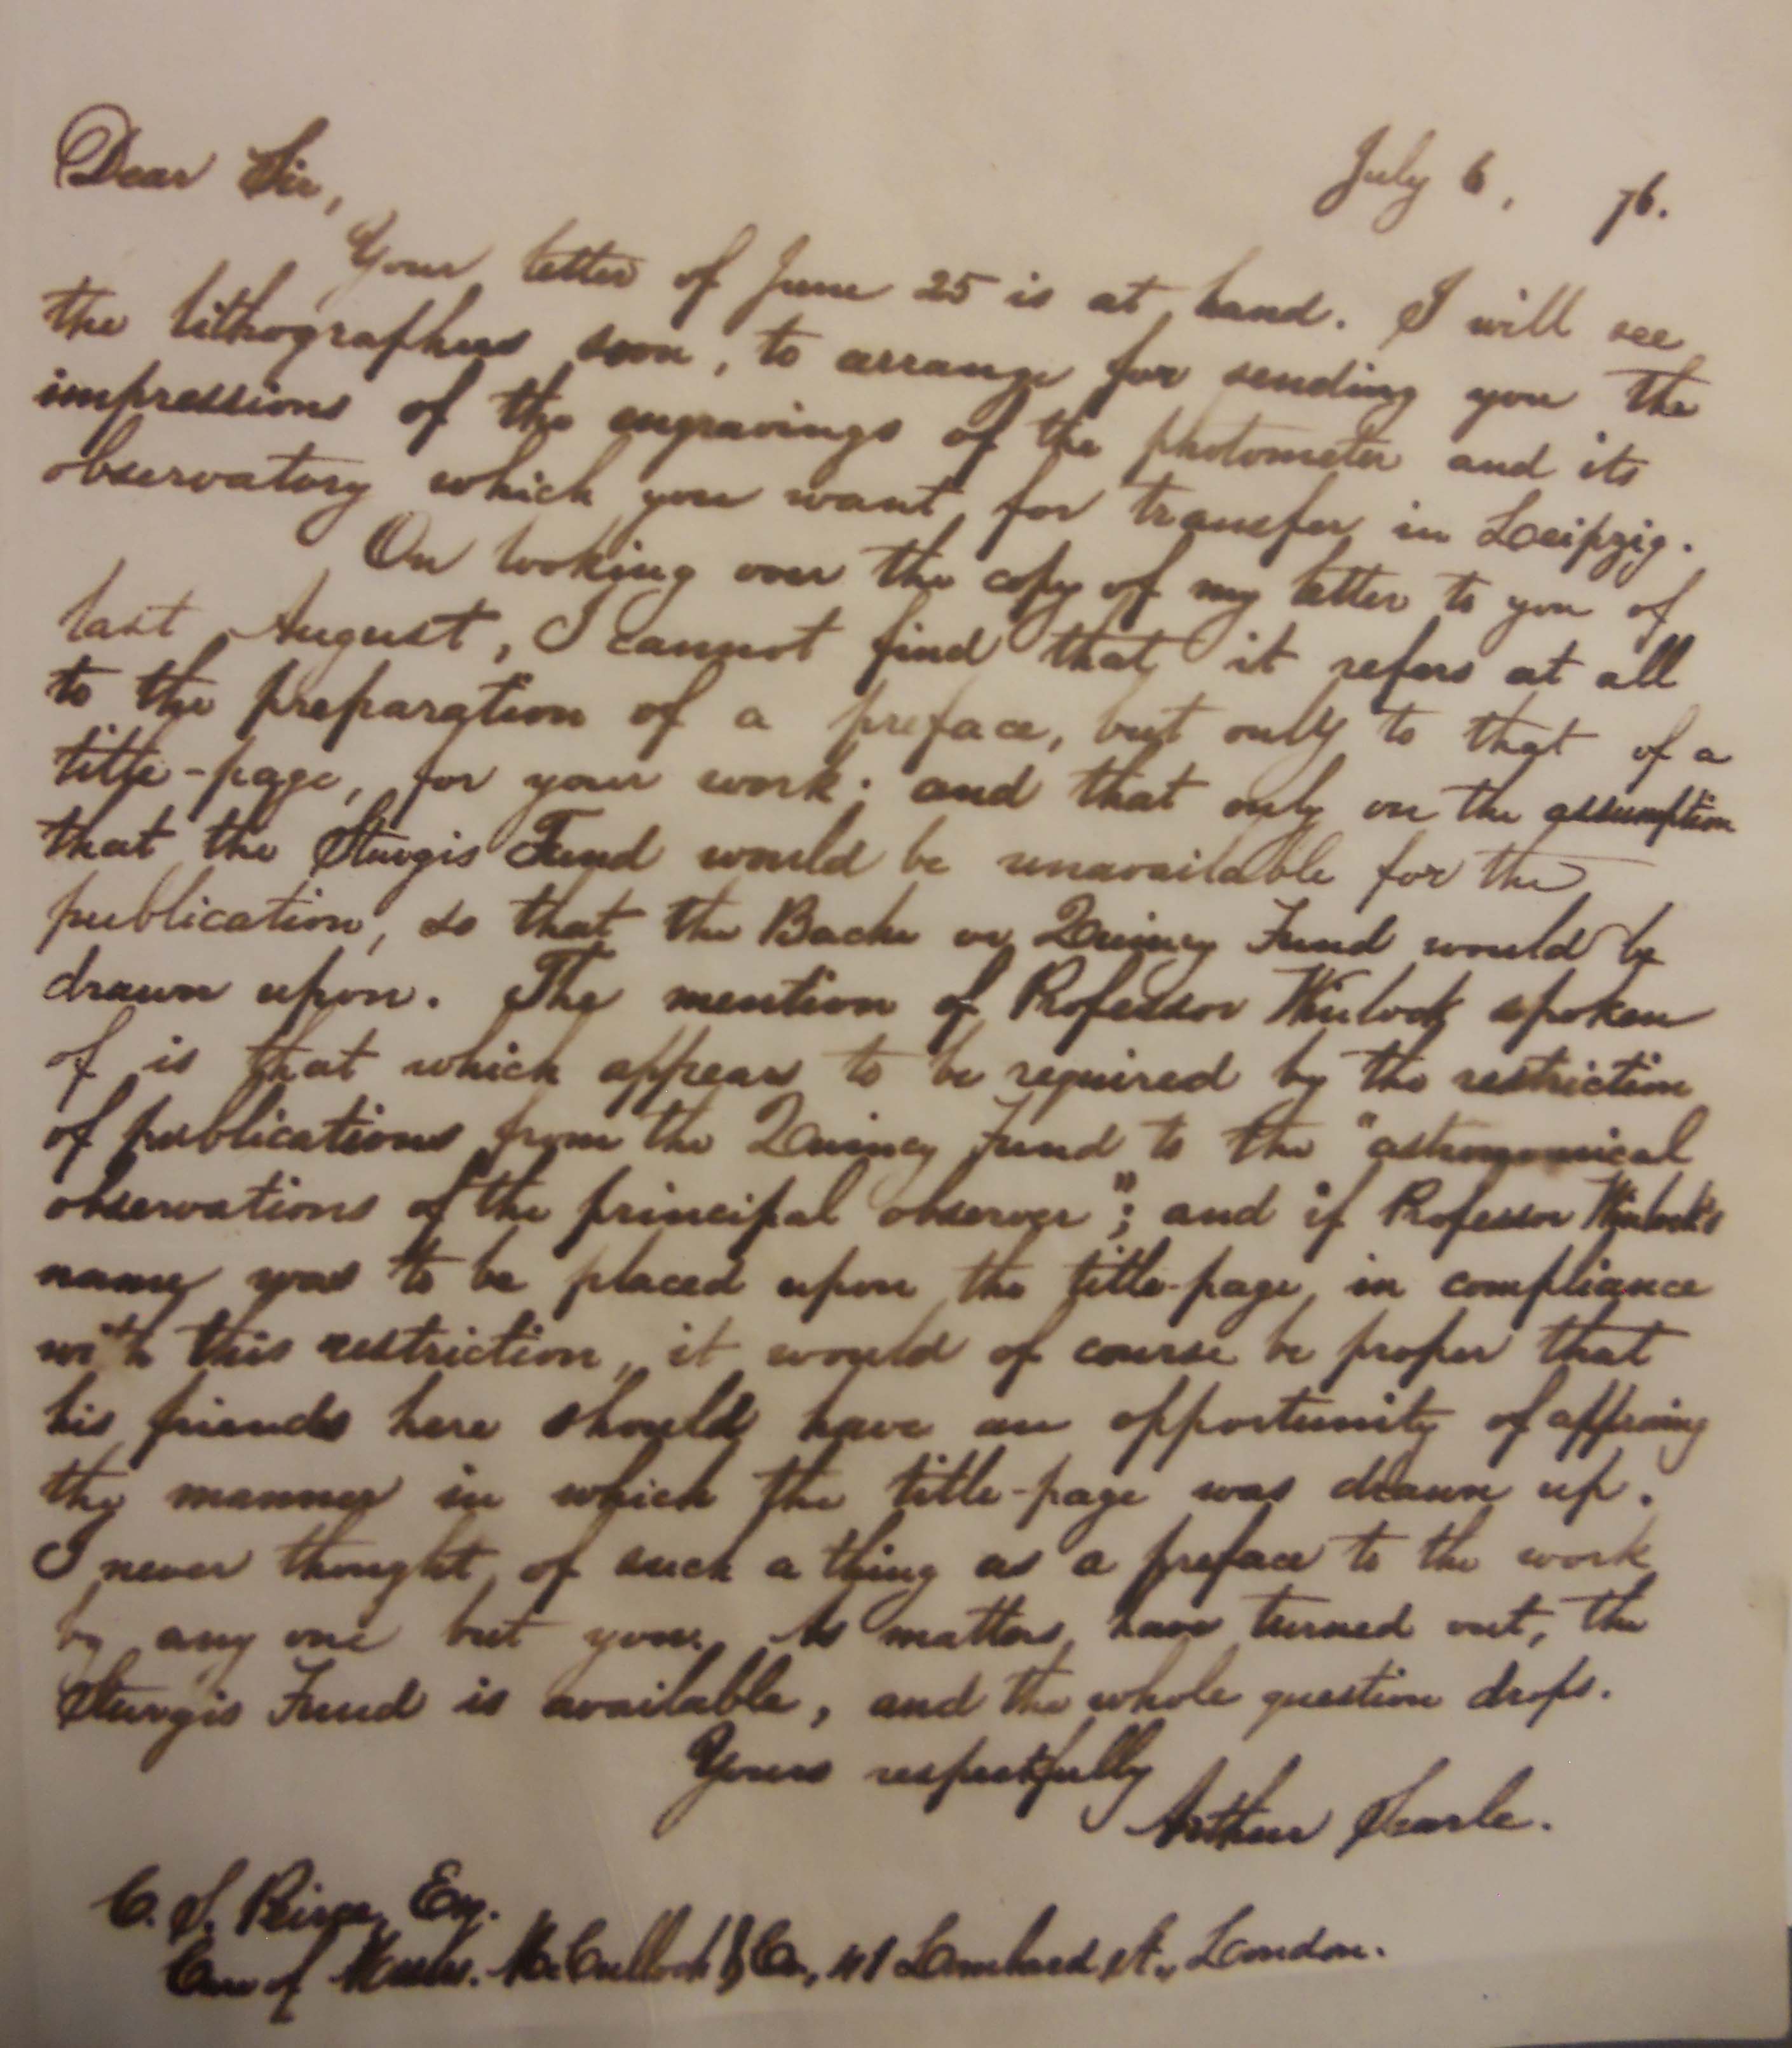 July 6, 76.
Dear Sir,
Your letter of June 25 is at hand. I will see
the lithographers soon, to arrange for sending you the
impressions of the engravings of the photometer and its
observatory which you want for transfer in Leipzig.
On looking over the copy of my letter to you of
last August, I cannot find that it refers at all
to the preparation of a preface, but only to that of a
title-page, for your work; and that only on the assumption
that the Sturgis Fund would be unavailable for the
publication, so that the Bache or Quincy Fund would be
drawn upon. The mention of Professor Winlock spoken
of is that which appears to be required by the restriction
of publications from the Quincy Fund to the "astronomical
observations of the principal observer"; and if Professor Winlock's
name was to be placed upon the title-page, in compliance
with this restriction, it would of course be proper that
his friends here should have an opportunity of approving
the manner in which the title-page was drawn up.
I never thought of such a thing as a preface to the work
by any one but you. As matters have turned out, the
Sturgis Fund is available, and the whole question drops.
Yours respectfully
Arthur Searle.
C. S. Peirce, Esq.
Care of Messrs. McCulloch & Co., 41 Lombard St., London.